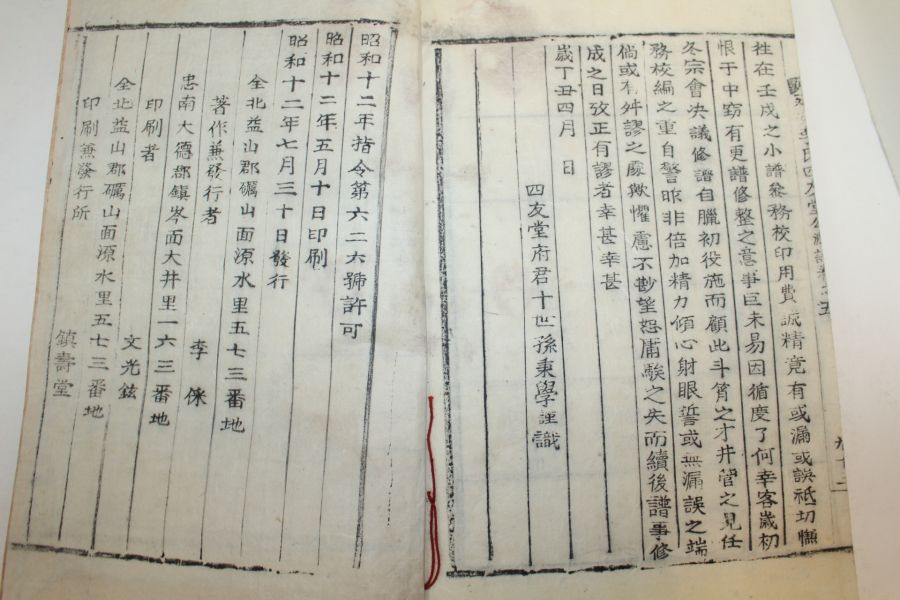 李氏四友堂公派譜卷之五
徃在壬戌之小譜忝務校印用費誠精竟有或漏或誤祗切慚
恨于中窃有更譜修整之意事巨未易因循度了何幸客歲初
冬宗會决議修譜自臘初役施而顧此斗筲之才井管之見任
務校編之重自警昨非倍加精力傾心財眼誓或無漏誤之端
倘或有舛謬之處欺懼慮不尠望恕庸駿之失而續後譜事修
成之日攷正有謬者幸甚幸甚
歲丁丑四月 日
四友堂府君十世孫秉學謹識
九十二
昭和十二年指令第六二六號許可
昭和十二年五月十日印刷
昭和十二年七月三十日發行
全北益山郡礪山面源水里五七三番地
著作兼發行者 李 倈
忠南大德郡鎮岑面大井里一六三番地
印刷者 文光鉉
全北益山郡礪山面源水里五七三番地
印刷兼發行所 鎮壽堂